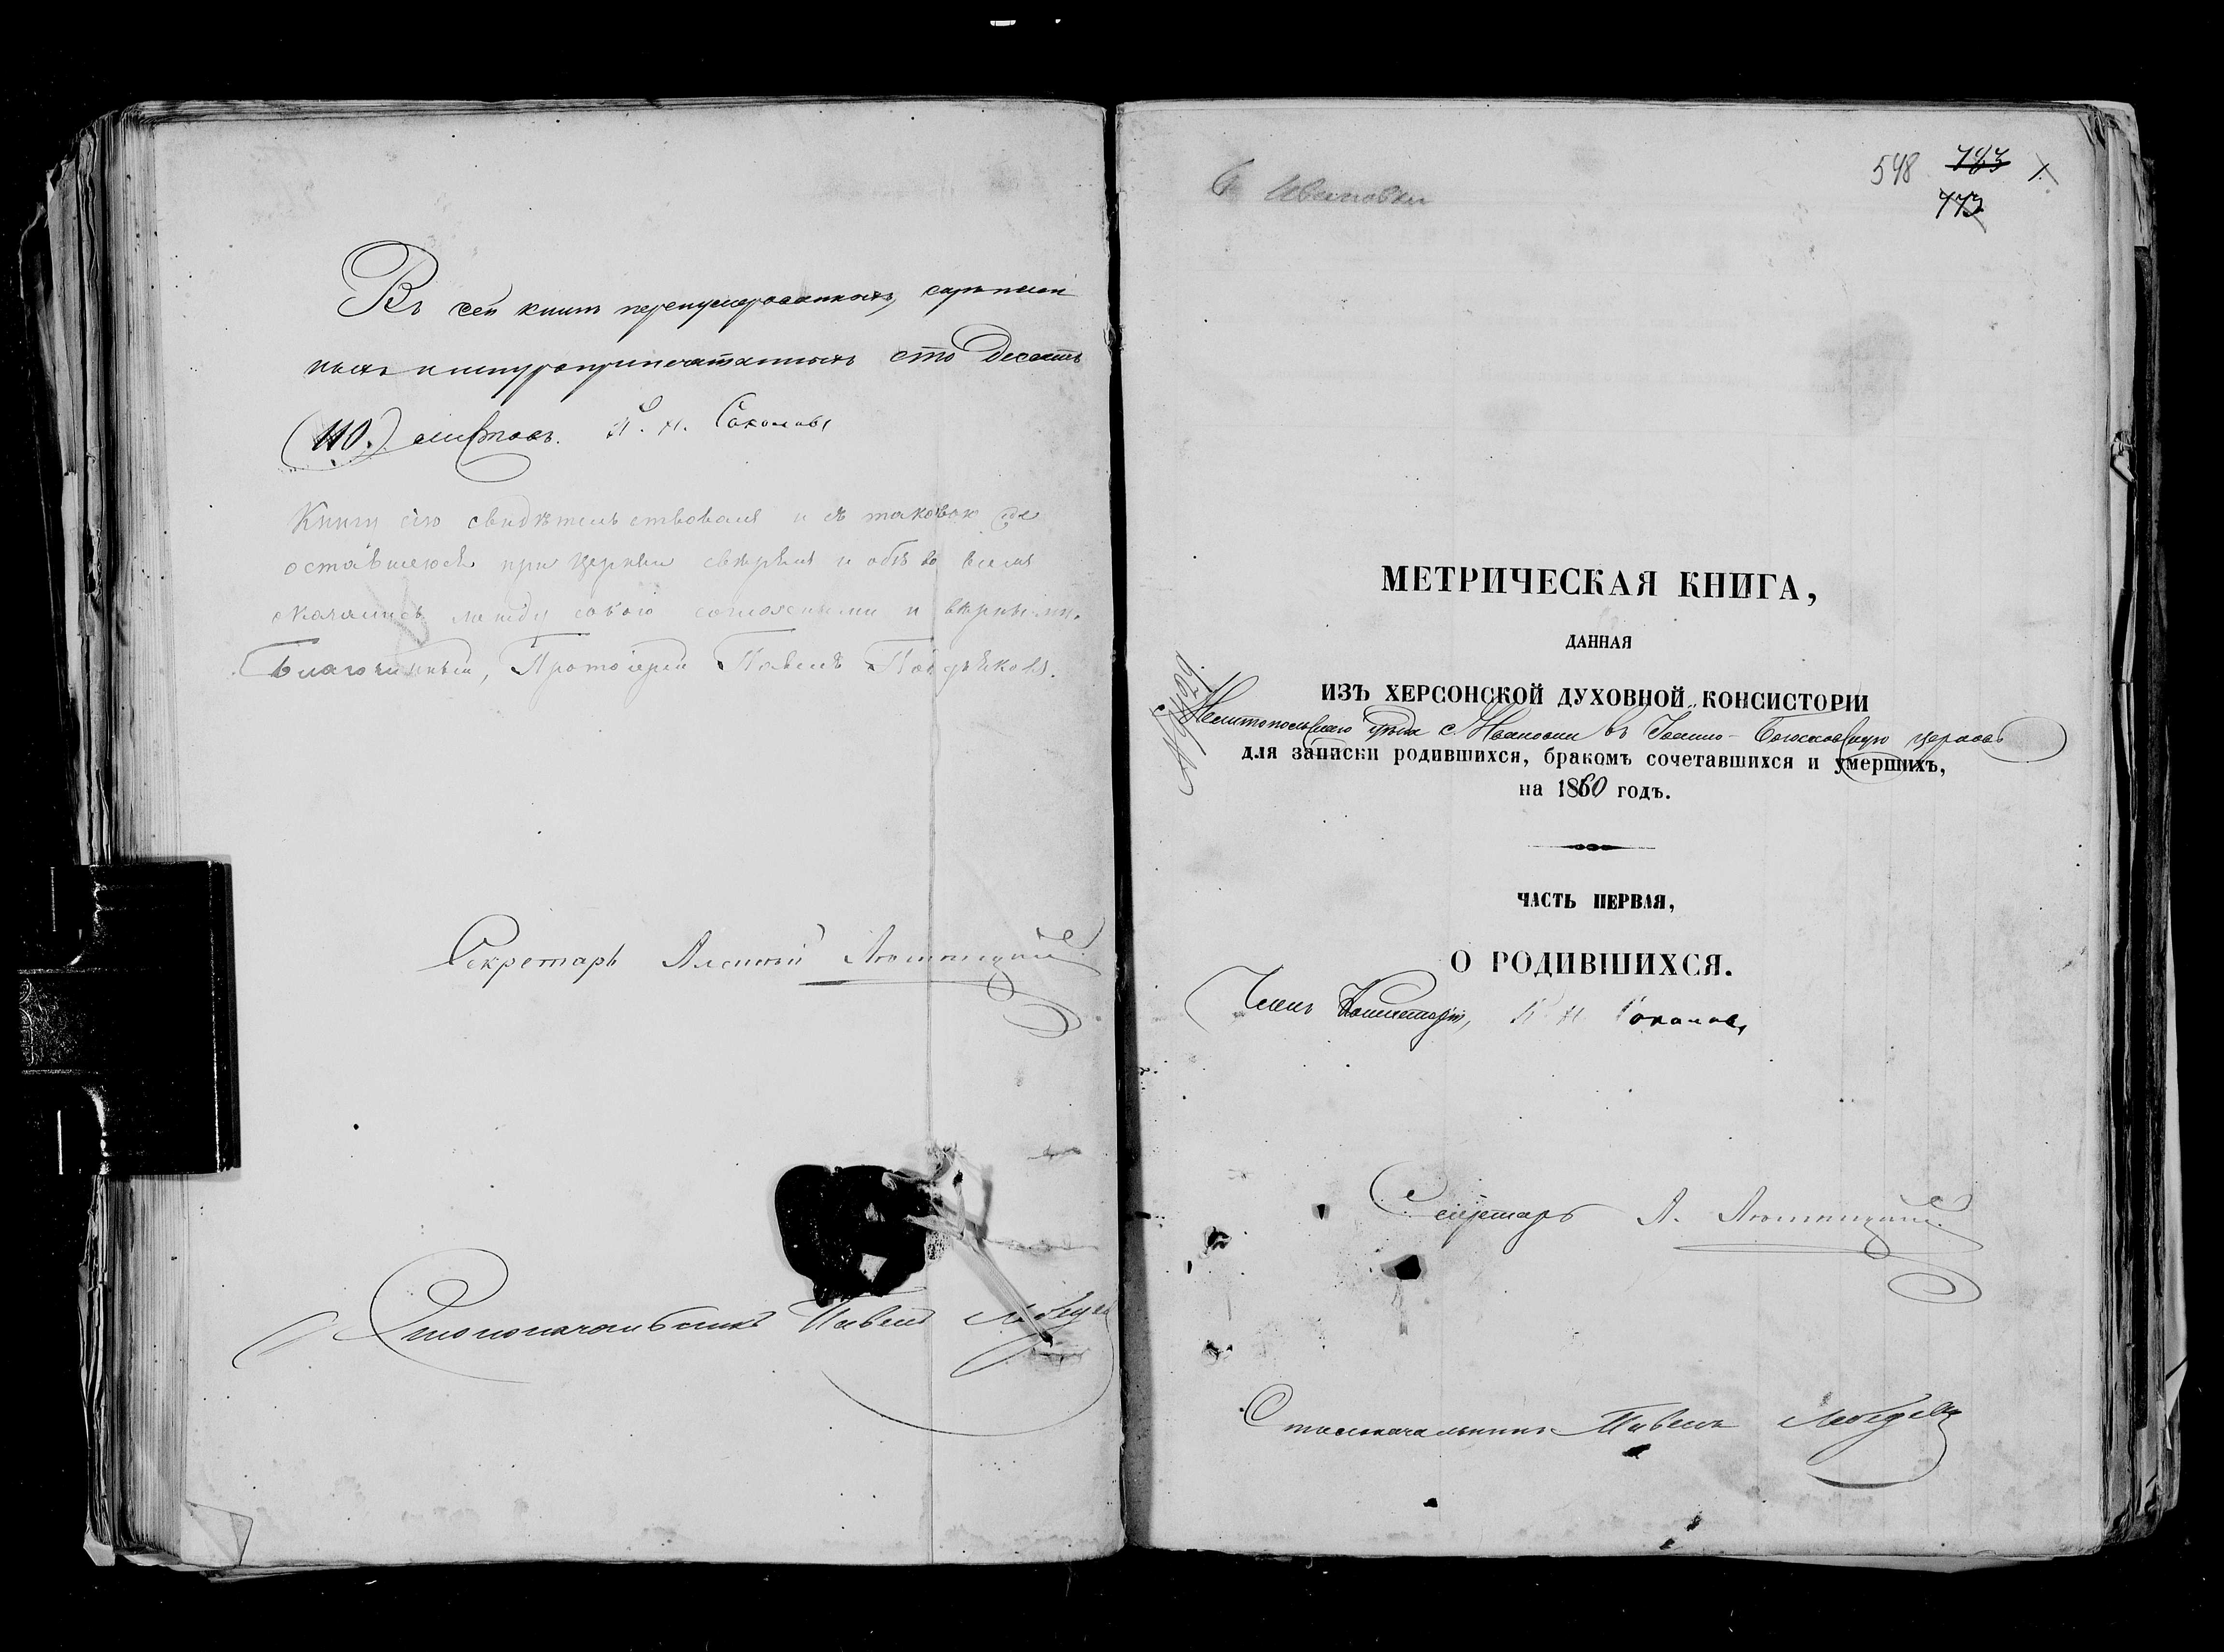 Въ сей книгѣ перенумерованныхъ, скрѣплен
ныхъ и шнуроприпечатанныхъ сто десять
(110.) листовъ. П. Н. Соколовъ
Книгу сію свидѣтельствовалъ и съ таковою же
оставшеюся при церкви свѣрялъ и обѣ во всемъ
оказались между собою согласными и вѣрными.
Благочинный, Протоіерей Павелъ
Секретарь Алексій
Столоначальникъ Павелъ Лебедев
С Ивановки
548 773
МЕТРИЧЕСКАЯ КНИГА,
ДАННАЯ
ИЗЪ ХЕРСОНСКОЙ ДУХОВНОЙ КОНСИСТОРІИ
Мелитопольскаго уѣзда с. Ивановки въ Іоанно-Богословскую церковь
для записки родившихся, бракомъ сочетавшихся и умершихъ,
на 1860 годъ.
ЧАСТЬ ПЕРВАЯ,
О РОДИВШИХСЯ.
Членъ Консисторіи, П. Н. Соколовъ
Секретарь А.
Столоначальникъ Павелъ Лебедевъ